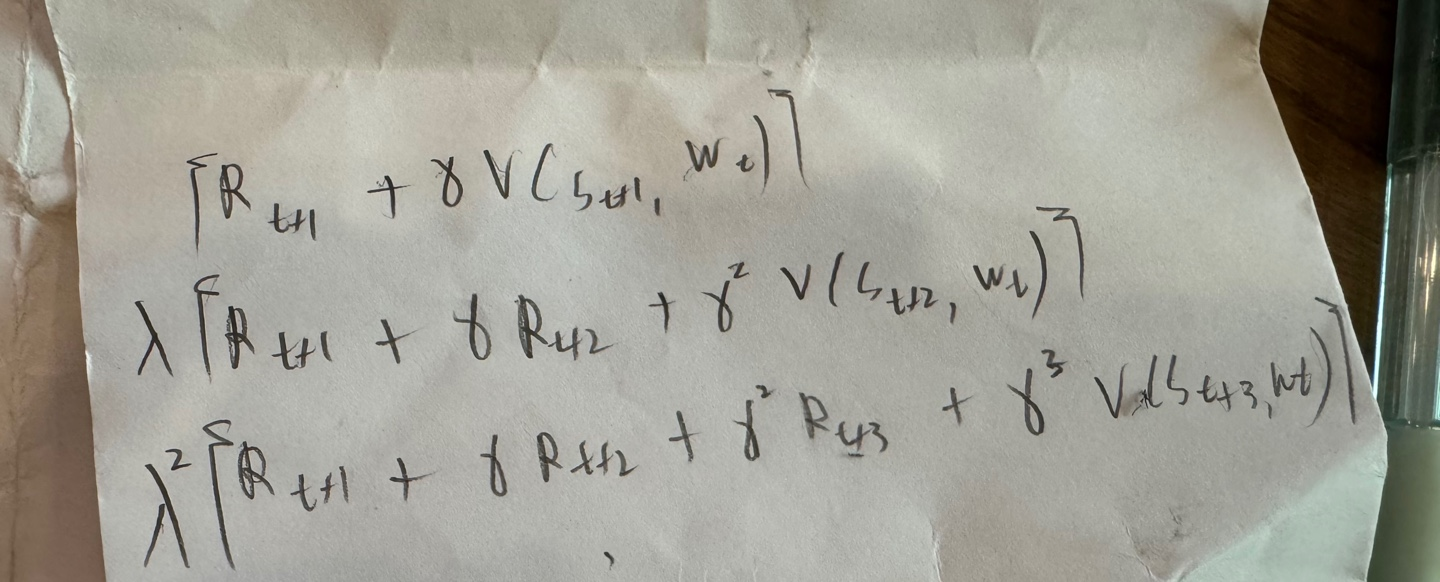 [R_{t+1} + γ V(S_{t+1}, W_t)]
λ [R_{t+1} + γ R_{t+2} + γ² V(S_{t+2}, W_t)]
λ² [R_{t+1} + γ R_{t+2} + γ² R_{t+3} + γ³ V(S_{t+3}, W_t)]